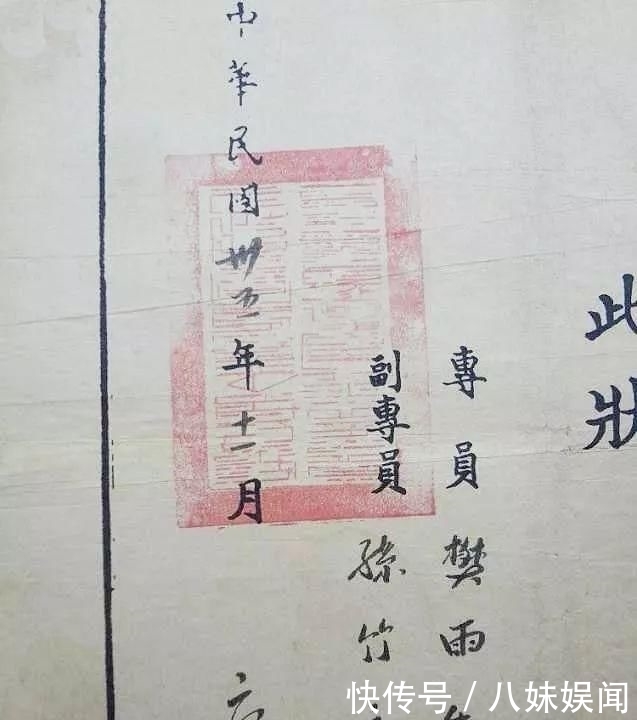 此狀
專員 樊雨
副專員 孫竹
中華民國卅五年十一月
快传号 / 八妹娱闻